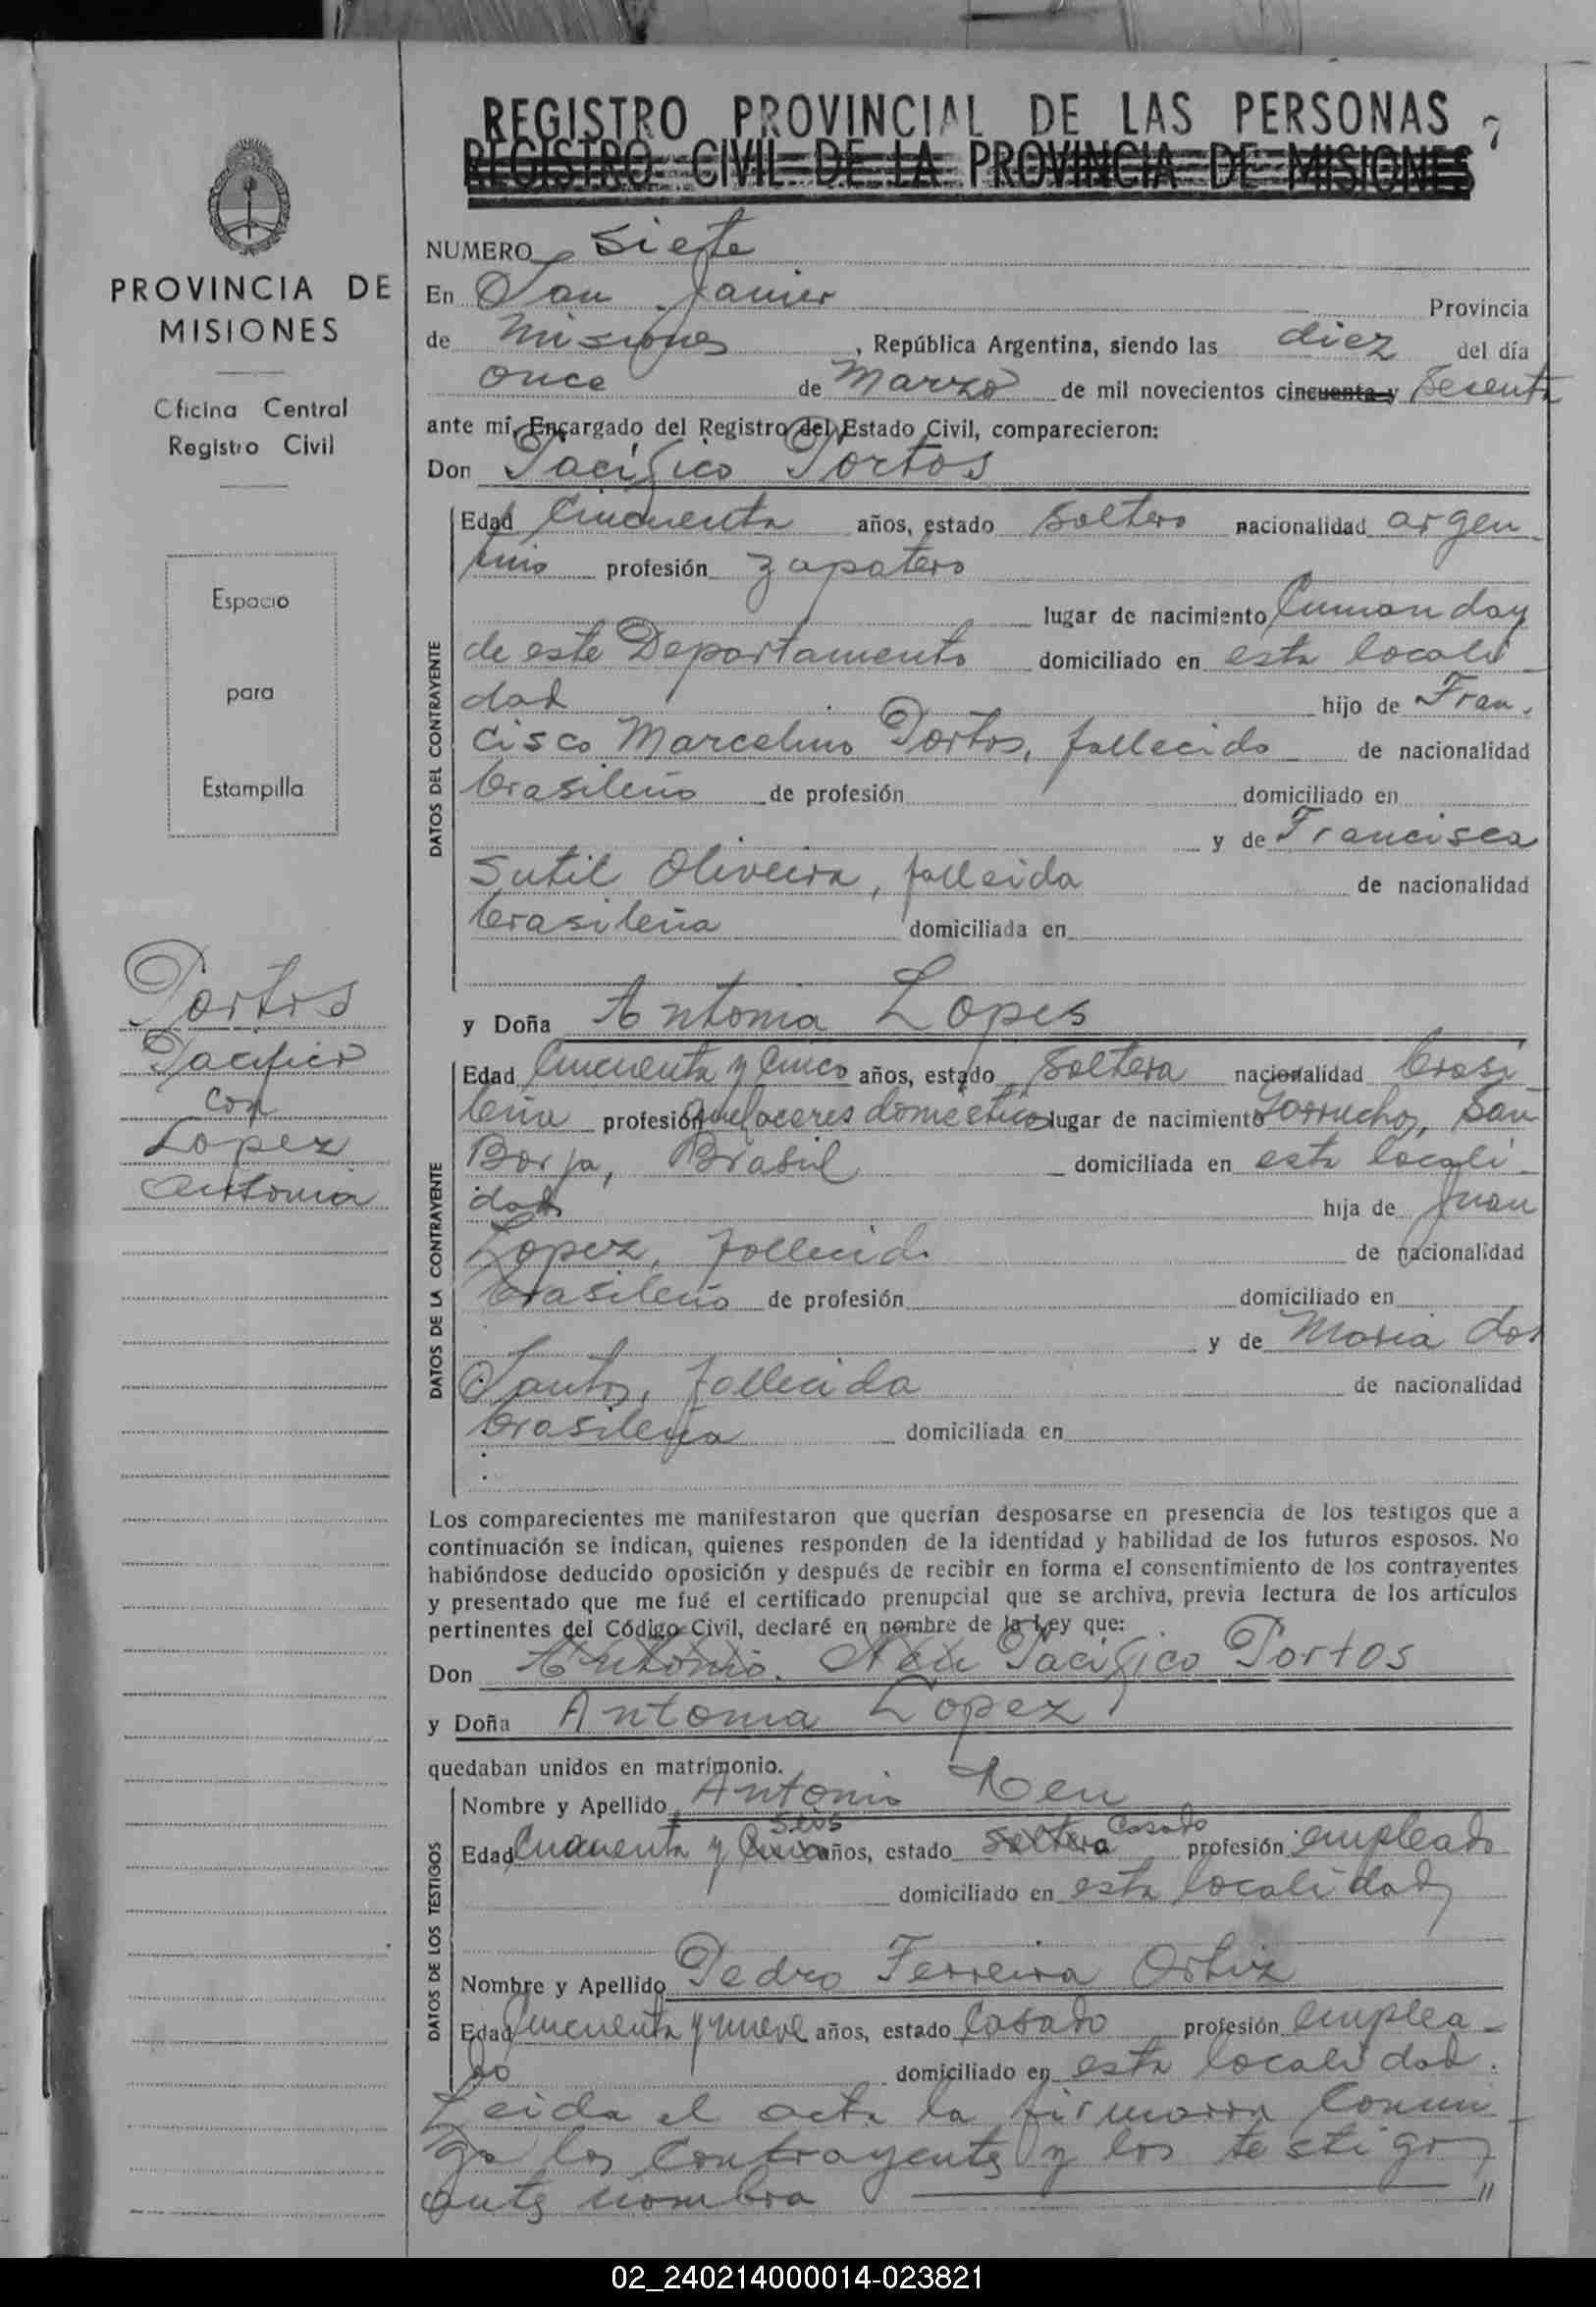 REGISTRO PROVINCIAL DE LAS PERSONAS 7
REGISTRO CIVIL DE LA PROVINCIA DE MISIONES
PROVINCIA DE
MISIONES
Oficina Central
Registro Civil
Espacio
para
Estampilla
Portos
Pacifico
con
Lopez
Antonia
NUMERO siete
En San Javier Provincia
de Misiones, República Argentina, siendo las diez del día
once de Marzo de mil novecientos cincuenta y Sesenta
ante mí, Encargado del Registro del Estado Civil, comparecieron:
Don Pacífico Portos
DATOS DEL CONTRAYENTE
Edad Cincuenta años, estado soltero nacionalidad argen-
tino profesión zapatero
lugar de nacimiento Cumanday
de este Departamento domiciliado en esta locali-
dad hijo de Fran-
cisco Marcelino Portos, fallecido de nacionalidad
brasileño de profesión domiciliado en
y de Francisca
Sutil Oliveira, fallecida de nacionalidad
brasileña domiciliada en
y Doña Antonia Lopes
DATOS DE LA CONTRAYENTE
Edad Cincuenta y Cinco años, estado soltera nacionalidad brasi-
leña profesión quehaceres domesticos lugar de nacimiento Garruchos, San
Borja, Brasil domiciliada en esta locali-
dad hija de Juan
Lopez, fallecido de nacionalidad
brasileño de profesión domiciliado en
y de Maria dos
Santos, fallecida de nacionalidad
brasileña domiciliada en
Los comparecientes me manifestaron que querían desposarse en presencia de los testigos que a
continuación se indican, quienes responden de la identidad y habilidad de los futuros esposos. No
habiéndose deducido oposición y después de recibir en forma el consentimiento de los contrayentes
y presentado que me fué el certificado prenupcial que se archiva, previa lectura de los artículos
pertinentes del Código Civil, declaré en nombre de la Ley que:
Don Antonio Neu Pacífico Portos
y Doña Antonia Lopez
quedaban unidos en matrimonio.
DATOS DE LOS TESTIGOS
Nombre y Apellido Antonio Neu
seis Casado
Edad Cuarenta y Cinco años, estado soltera profesión empleado
domiciliado en esta localidad
Nombre y Apellido Pedro Ferreira Ortiz
Edad Cincuenta y nueve años, estado Casado profesión emplea-
do domiciliado en esta localidad.
Leida el acta la firmaron Conmi-
go los Contrayentes y los testigos
antes nombra
02_240214000014-023821